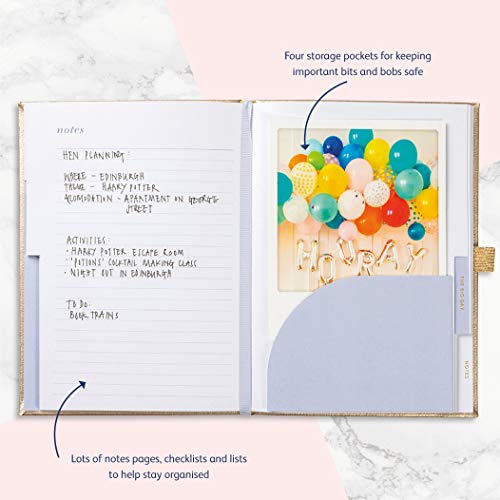 Four storage pockets for keeping
important bits and bobs safe
notes
HEN PLANNING:
WHERE - EDINBURGH
THEME - HARRY POTTER
ACCOMODATION - APARTMENT ON GEORGE
STREET
ACTIVITIES:
• HARRY POTTER ESCAPE ROOM
• 'POTIONS' COCKTAIL MAKING CLASS
• NIGHT OUT IN EDINBURGH
TO DO:
BOOK TRAINS
HOORAY
THE BIG DAY
NOTES
Lots of notes pages, checklists and lists
to help stay organised